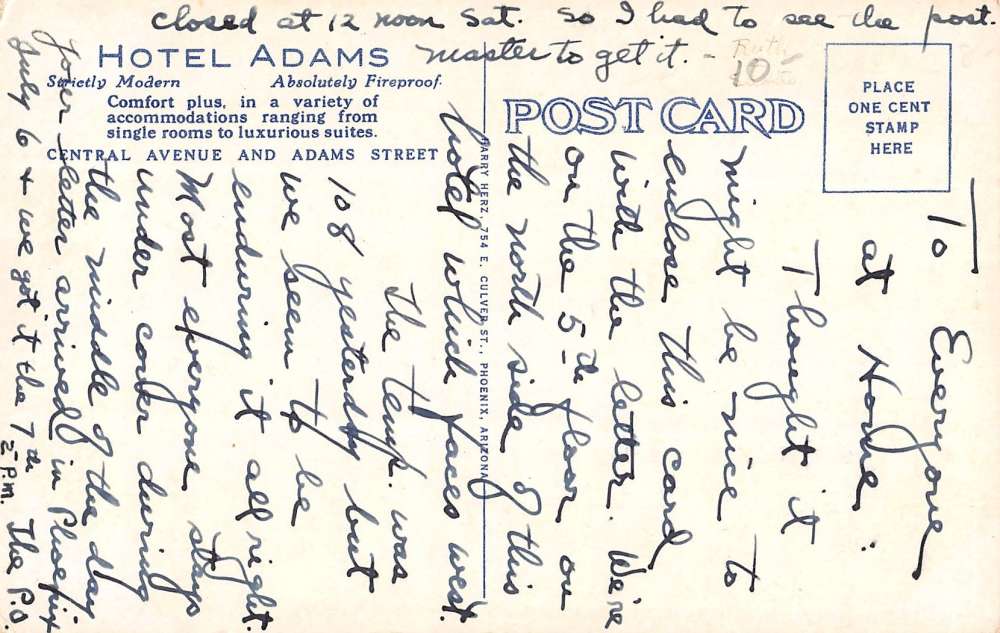 HOTEL ADAMS
Strictly Modern Absolutely Fireproof.
Comfort plus, in a variety of
accommodations ranging from
single rooms to luxurious suites.
CENTRAL AVENUE AND ADAMS STREET
POST CARD
PLACE
ONE CENT
STAMP
HERE
BARRY HERZ, 754 E. CULVER ST., PHOENIX, ARIZONA
10
To Everyone
at Home.
Thought it
might be nice to
enclose this card
with the letter. We're
on the 5th floor on
the north side of this
hotel which faces west.
The temp. was
108 yesterday but
we seem to be
enduring it all right.
Most everyone stays
under cover during
the middle of the day
Your letter arrived in Phoenix
July 6 & we got it the 7th P.M. The P.O.
closed at 12 noon Sat. So I had to see the post.
master to get it. -